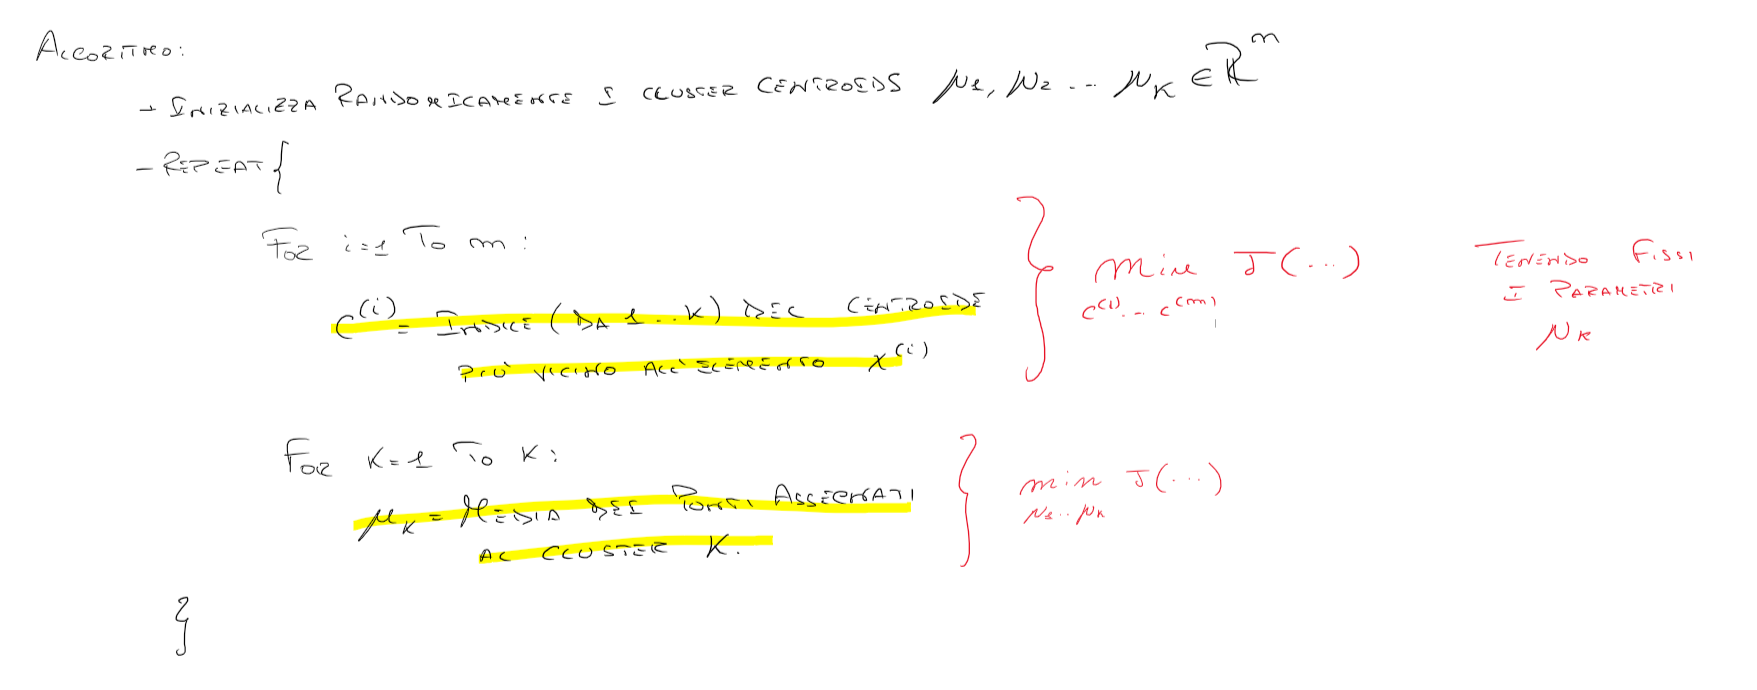 ALGORITMO:
→ INIZIALIZZA RANDOMICAMENTE I CLUSTER CENTROIDS μ₁, μ₂ ... μ_K ∈ ℝⁿ
- REPEAT {
FOR i=1 TO m:
c⁽ⁱ⁾ = INDICE (DA 1...K) DEL CENTROIDE
PIÙ VICINO ALL'ELEMENTO x⁽ⁱ⁾
} min J(...)
c⁽¹⁾... c⁽ᵐ⁾,
TENENDO FISSI
I PARAMETRI
μ_K
FOR K=1 TO K:
μ_K = MEDIA DEI PUNTI ASSEGNATI
AL CLUSTER K.
} min J(...)
μ₁..μ_K
}